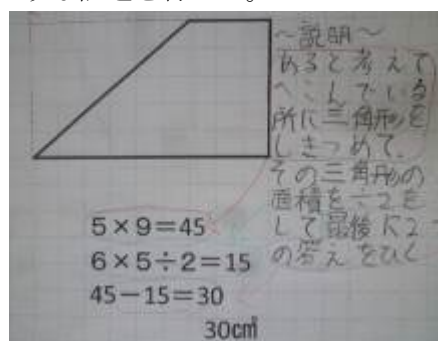 ～説明～
あると考えて
へこんでいる
所に三角形を
しきつめて、
その三角形の
面積を÷2を
して最後に2つ
の答えをひく
5×9=45
6×5÷2=15
45−15=30
30c㎡